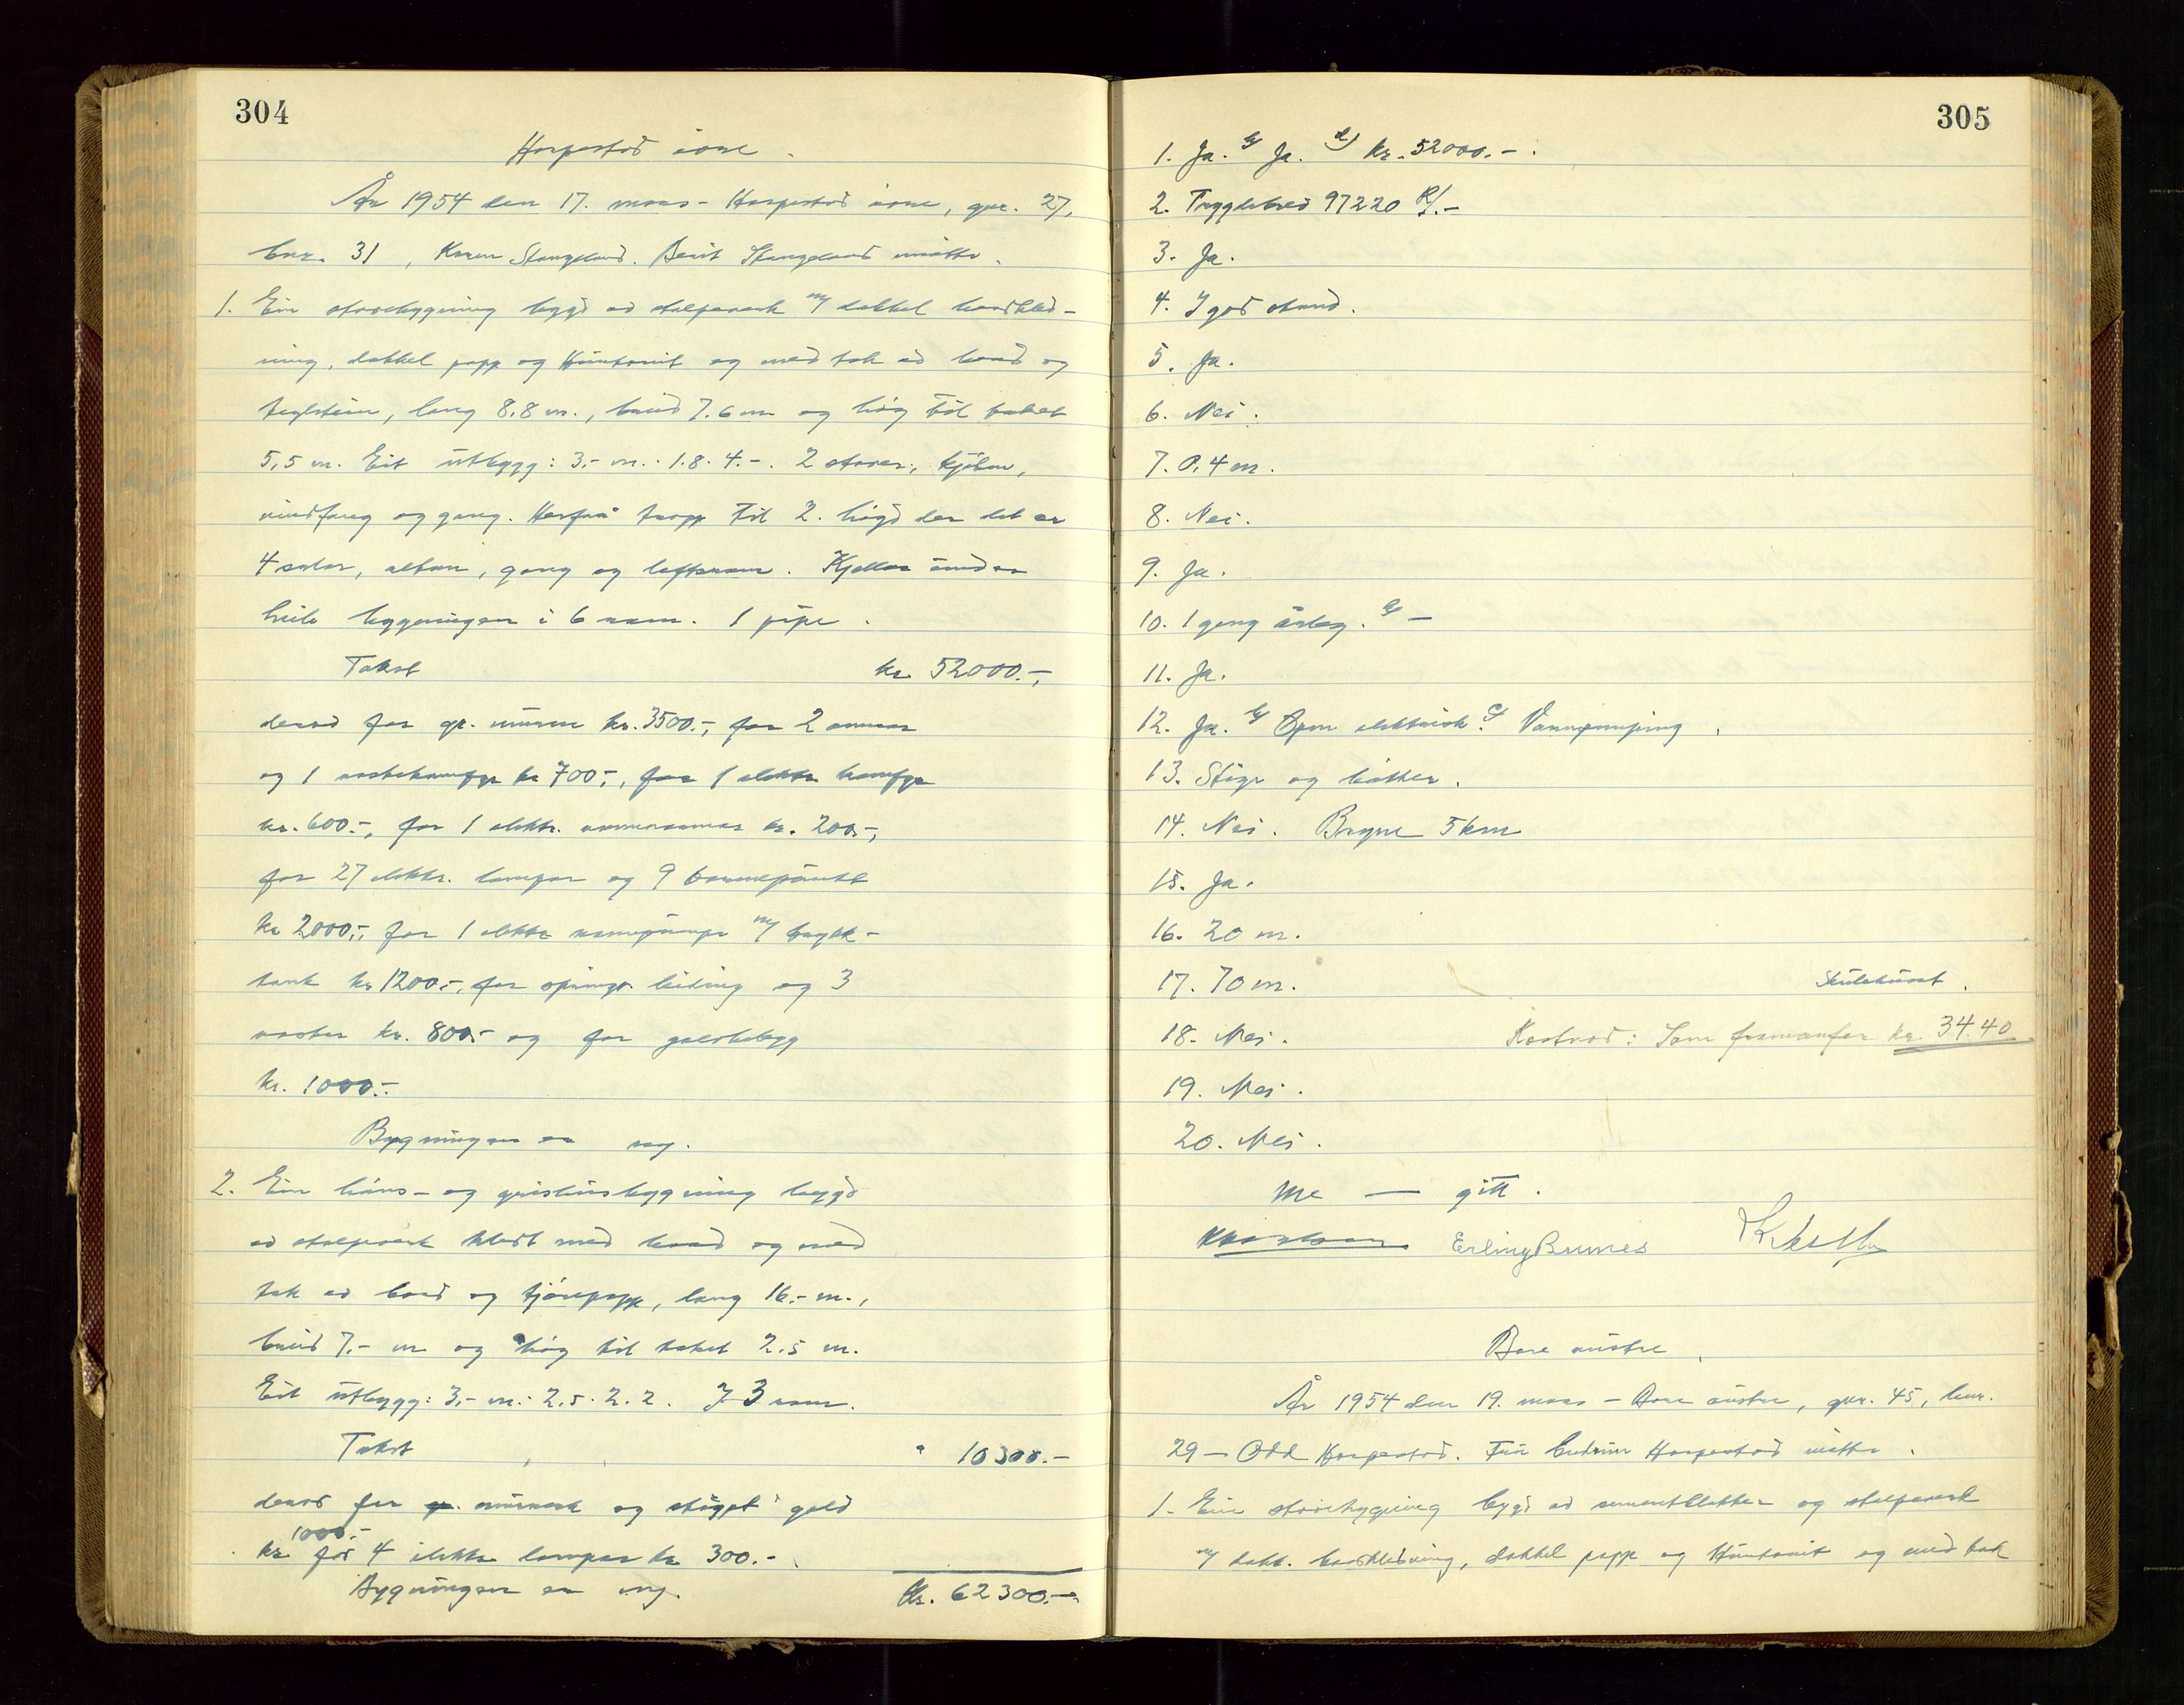 304
Horpestad övre.
År 1954 den 17. mars - Horpestad övre, gnr. 27,
bnr. 31, Karen Stangeland. Berit Stangeland møtte.
1. Ein stovebygning bygd av stolpeverk m/ dobbel bordkled-
ning, dobbel papp og Huntonit og med tak av bord og
teglstein, lang 8.8 m., breid 7.6 m og høg til taket
5,5 m. Eit utbygg: 3,- m. · 1.8 · 4.-. 2 stover, kjøken,
vindfang og gang. Herfrå trapp til 2. høgd der det er
4 salar, altan, gang og loftsrom. Kjellar under
heile bygningen i 6 rom. 1 pipe.
Takst kr 52000.-,
derav for gr. muren kr. 3500.-, for 2 omnar
og 1 vaskekomfyr kr 700.-, for 1 elektr komfyr
kr. 600.-, for 1 elektr. kr. 200.-,
for 27 elektr. lampar og 9 varmepunkt
kr 2000.-, for 1 elektr vannpumpe m/ trykk-
tank kr 1200.-, for springv. leiding og 3
vasker kr. 800.- og for golvbelegg
kr. 1000.-
Bygningen er ny.
2. Ein høns- og grisehusbygning bygd
av stolpeverk kledt med bord og med
tak av bord og tjørepapp, lang 16.- m.,
breid 7.- m og høg til taket 2.5 m.
Eit utbygg: 3,- m. · 2.5 · 2.2. I 3 rom.
Takst " 10300.-
derav for murverk og støypt golv
kr 1000.- for 4 elektr lampar kr 300.-.
Bygningen er ny. Kr. 62300.-
305
1. Ja. b/ Ja. d/ kr. 52000.-.
2. Trygdebrev 97220 R/.-
3. Ja.
4. I god stand.
5. Ja.
6. Nei.
7. 0,4 m.
8. Nei.
9. Ja.
10. 1 gang årleg. b/ -
11. Ja.
12. Ja. b/ Open elektrisk. c/ Vannpumping.
13. Stige og bøtter.
14. Nei. Bryne 5 km
15. Ja.
16. 20 m.
17. 70 m. Skulehuset.
18. Nei. Kostnad: Som framanfor kr. 34.40
19. Nei.
20. Nei.
Me — gitt.
Erling Brunes
Bore austre.
År 1954 den 19. mars - Bore austre, gnr. 45, bnr.
29 - Odd Horpestad. Fru Gudrun Horpestad møtte.
1. Ein stovebygning bygd av sementblokker og stolpeverk
m/ dobb. bordkledning, dobbel papp og Huntonit og med tak